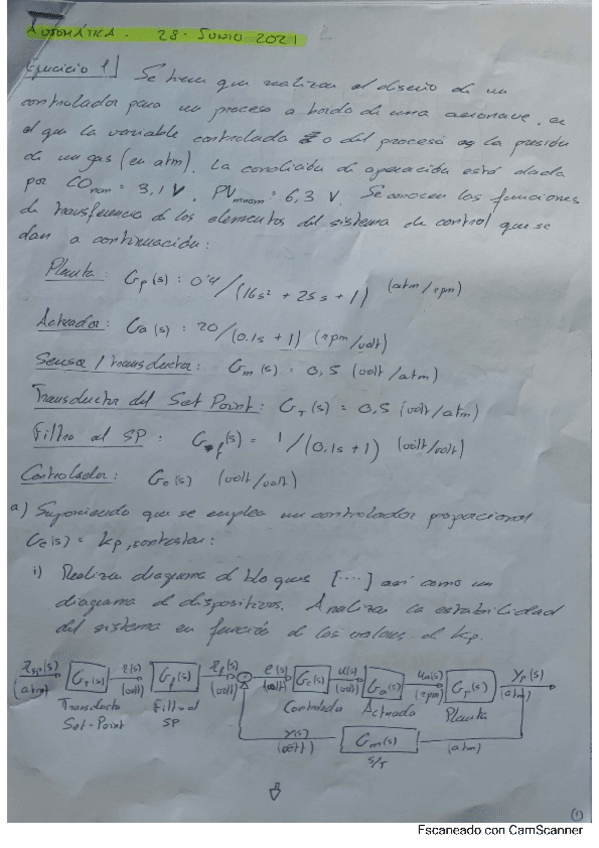 AUTOMÁTICA. 28-JUNIO 2021
Ejercicio 1] Se tiene que realizar el diseño de un
controlador para un proceso a bordo de una aeronave, en
el que la variable controlada o del proceso es la presión
de un gas (en atm). La condición de operación está dada
por COnom = 3,1 V, PVmnom = 6,3 V. Se conocen las funciones
de transferencia de los elementos del sistema de control que se
dan a continuación:
Planta: Gp(s) = 0'4/(16s² + 25s + 1) (atm/rpm)
Actuador: Ga(s) = 20/(0.1s + 1) (rpm/volt)
Sensor/transductor: Gm(s) = 0,5 (volt/atm)
Transductor del Set Point: GT(s) = 0,5 (volt/atm)
Filtro al SP: Gf(s) = 1/(0.1s + 1) (volt/volt)
Controlador: Gc(s) (volt/volt)
a) Suponiendo que se emplea un controlador proporcional
Gc(s) = kp, contestar:
i) Realizar diagrama de bloques [....] así como un
diagrama de dispositivos. Analizar la estabilidad
del sistema en función de los valores de kp.
rsp(s) r(s) rf(s) e(s) u(s) ua(s) yp(s)
GT(s) Gf(s) Gc(s) Ga(s) Gp(s)
(atm) (volt) (volt) (volt) (volt) (rpm) (atm)
Transductor Filtro al Controlador Actuador Planta
Set-Point SP
y(s) Gm(s)
(volt) (atm)
S/T
1
Escaneado con CamScanner